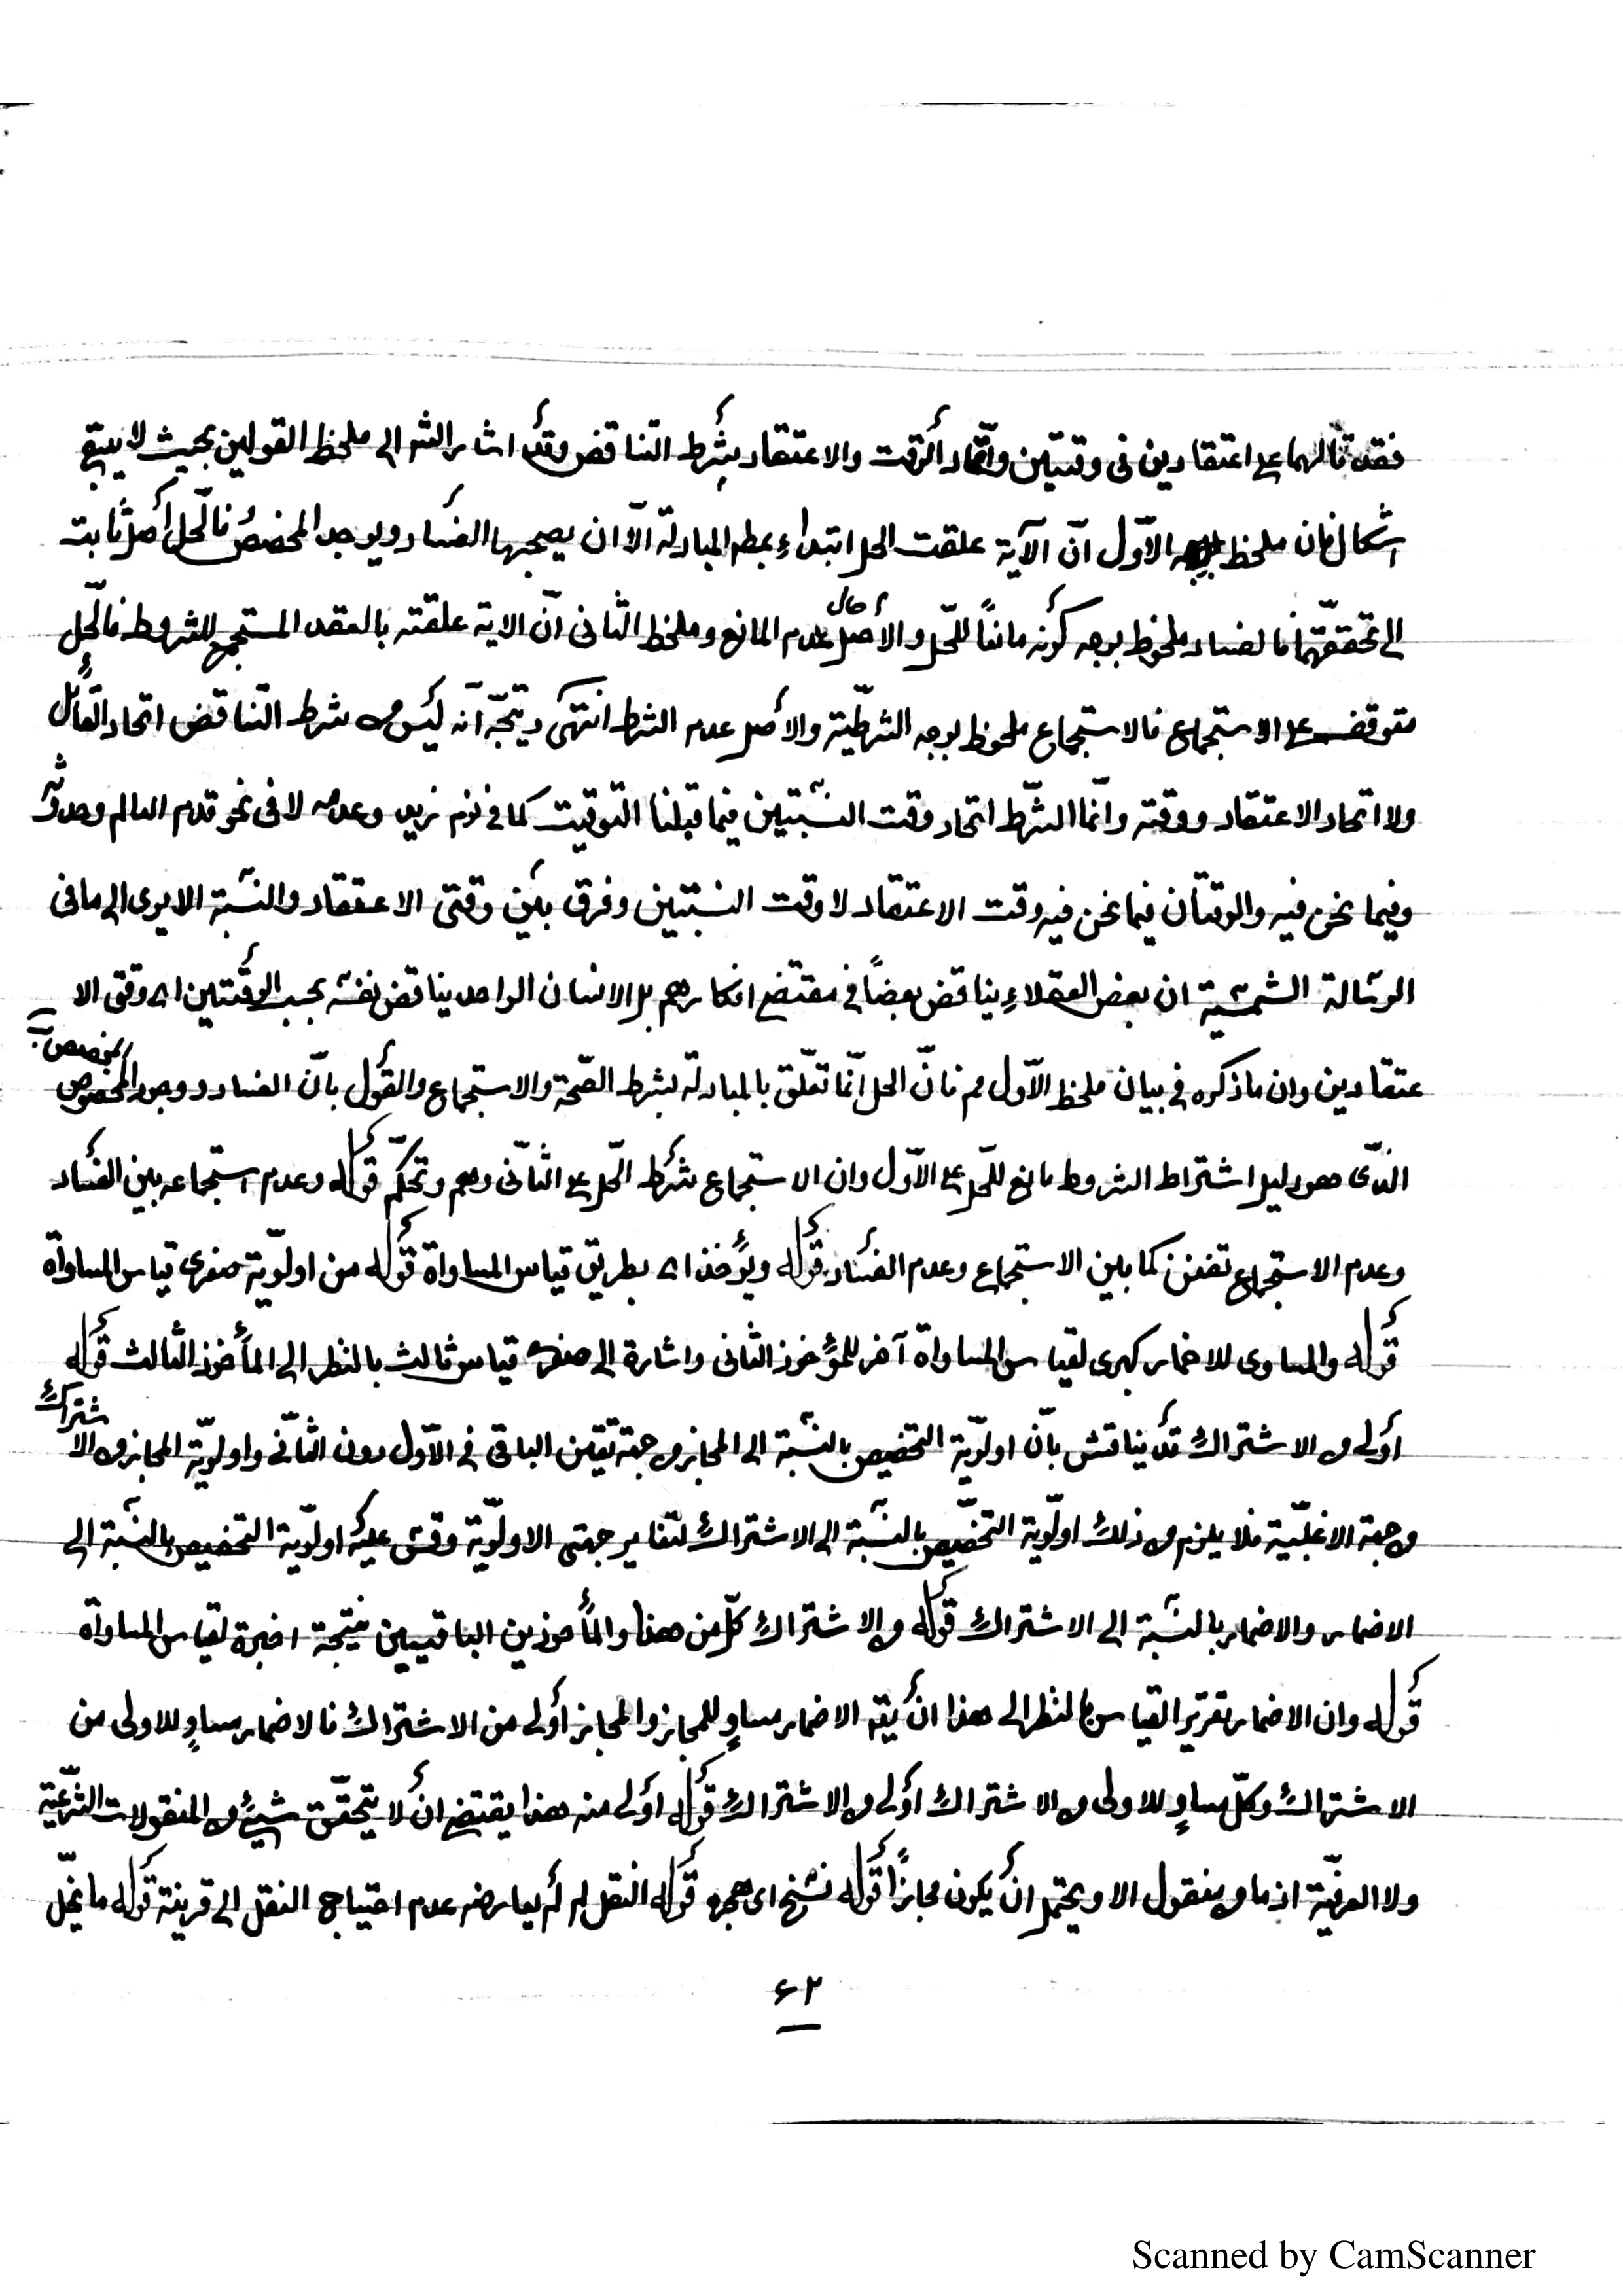 فقد قالهما على اعتقادين فى وقتين واتّحاد الوقت والاعتقاد بشرط التناقض وقد اشار الشر الى ملحظ القولين بحيث لا يبقى
اشكال فان ملحظ الاوّل انّ الآية علقت الحل ابتداءً بمط المبادلة الّا ان يصحبها الفساد ويوجد المخصص فالحل اصل ثابت
الى تحققهما فالفساد ملحوظ بوجه كونه مانعاً للحّل والأصل عدم المانع وملحظ الثانى انّ الاية علقته بالعقد المستجمع للشروط فالحّل
متوقف على الاستجماع فالاستجماع ملحوظ بوجه الشرطيّة والأصل عدم الشرط انتهى ويتجّه انه ليس من شرط التناقض اتحاد القائل
ولا اتحاد الاعتقاد ووقته وانّما الشّرط اتحاد وقت النسّبتين فيما قبلنا التوقيت كما فى نوم زيد وعدمه لا فى نحو قدم العالم وحدوثه
وفيما نحن فيه والوقتان فيما نحن فيه وقت الاعتقاد لا وقت النسبتين وفرق بين وقتى الاعتقاد والنسبة الا يرى الى ما فى
الرسالة الشمسية ان بعض العقلاء يناقض بعضاً فى مقتضى افكارهم بل الانسان الواحد يناقض نفسه بحسب الوقتين اى وقتى الا
عتقادين وان ما ذكره فى بيان ملحظ الاّول مم فانّ الحل انّما تعلّق بالمبادلة بشرط الصّحة والاستجماع والقول بانّ الفساد ووجود المخصص
الذّى هو دليل اشتراط الشروط مانع للحّل على الاّول وان الاستجماع شرط الحّل على الثانّى وهم وتحكّم قوله وعدم استجماعه بين الفساد
وعدم الاستجماع تفنن كما بين الاستجماع وعدم الفساد قوله ويؤخذ اى بطريق قياس المساواة قوله من اولويّة صغرى قياس المساواة
قوله والمساوى للاضمار كبرى لقياس المساواة آخر للمؤخوذ الثانى واشارة الى صغرى قياس ثالث بالنظر الى المأخوذ الثالث قوله
اولى من الاشتراك قد يناقش بانّ اولويّة التخصيص بالنسّبة الى المجاز من جهة تعّين الباقى فى الاّول دون الثانّى واولويّة المجاز من الاشتراك
من جهة الاغلبيّة فلا يلزم من ذلك اولّوية التخصّيص بالنسّبة الى الاشتراك لتغاير جهتى الاولويّة وقس عليه اولويّة التخصيص بالنسّبة الى
الاضمار والاضمار بالنسّبة الى الاشتراك قوله من الاشتراك كلّ من هذا والمأخوذين الباقيين نتيجة اخيرة لقياس المساواة
قوله وان الاضمار تقرير القياس بالنظر الى هذا ان يقه الاضمار مساوٍ للمجاز والمجاز أولى من الاشتراك فالاضمار مساوٍ للاولى من
الاشتراك وكلّ مساوٍ للاولى من الاشتراك أولى من الاشتراك قوله اولى منه هذا يقتضى ان لا يتحقّق شيئ من المنقولات الشّرعيّة
ولا العرفيّة اذ ما من منقول الا ويحتمل ان يكون مجازاً قوله نسخ اى هجر قوله النقل لم لم يعارضه عدم احتياج النقل الى قرينة قوله ما يخّل
٦٢
Scanned by CamScanner